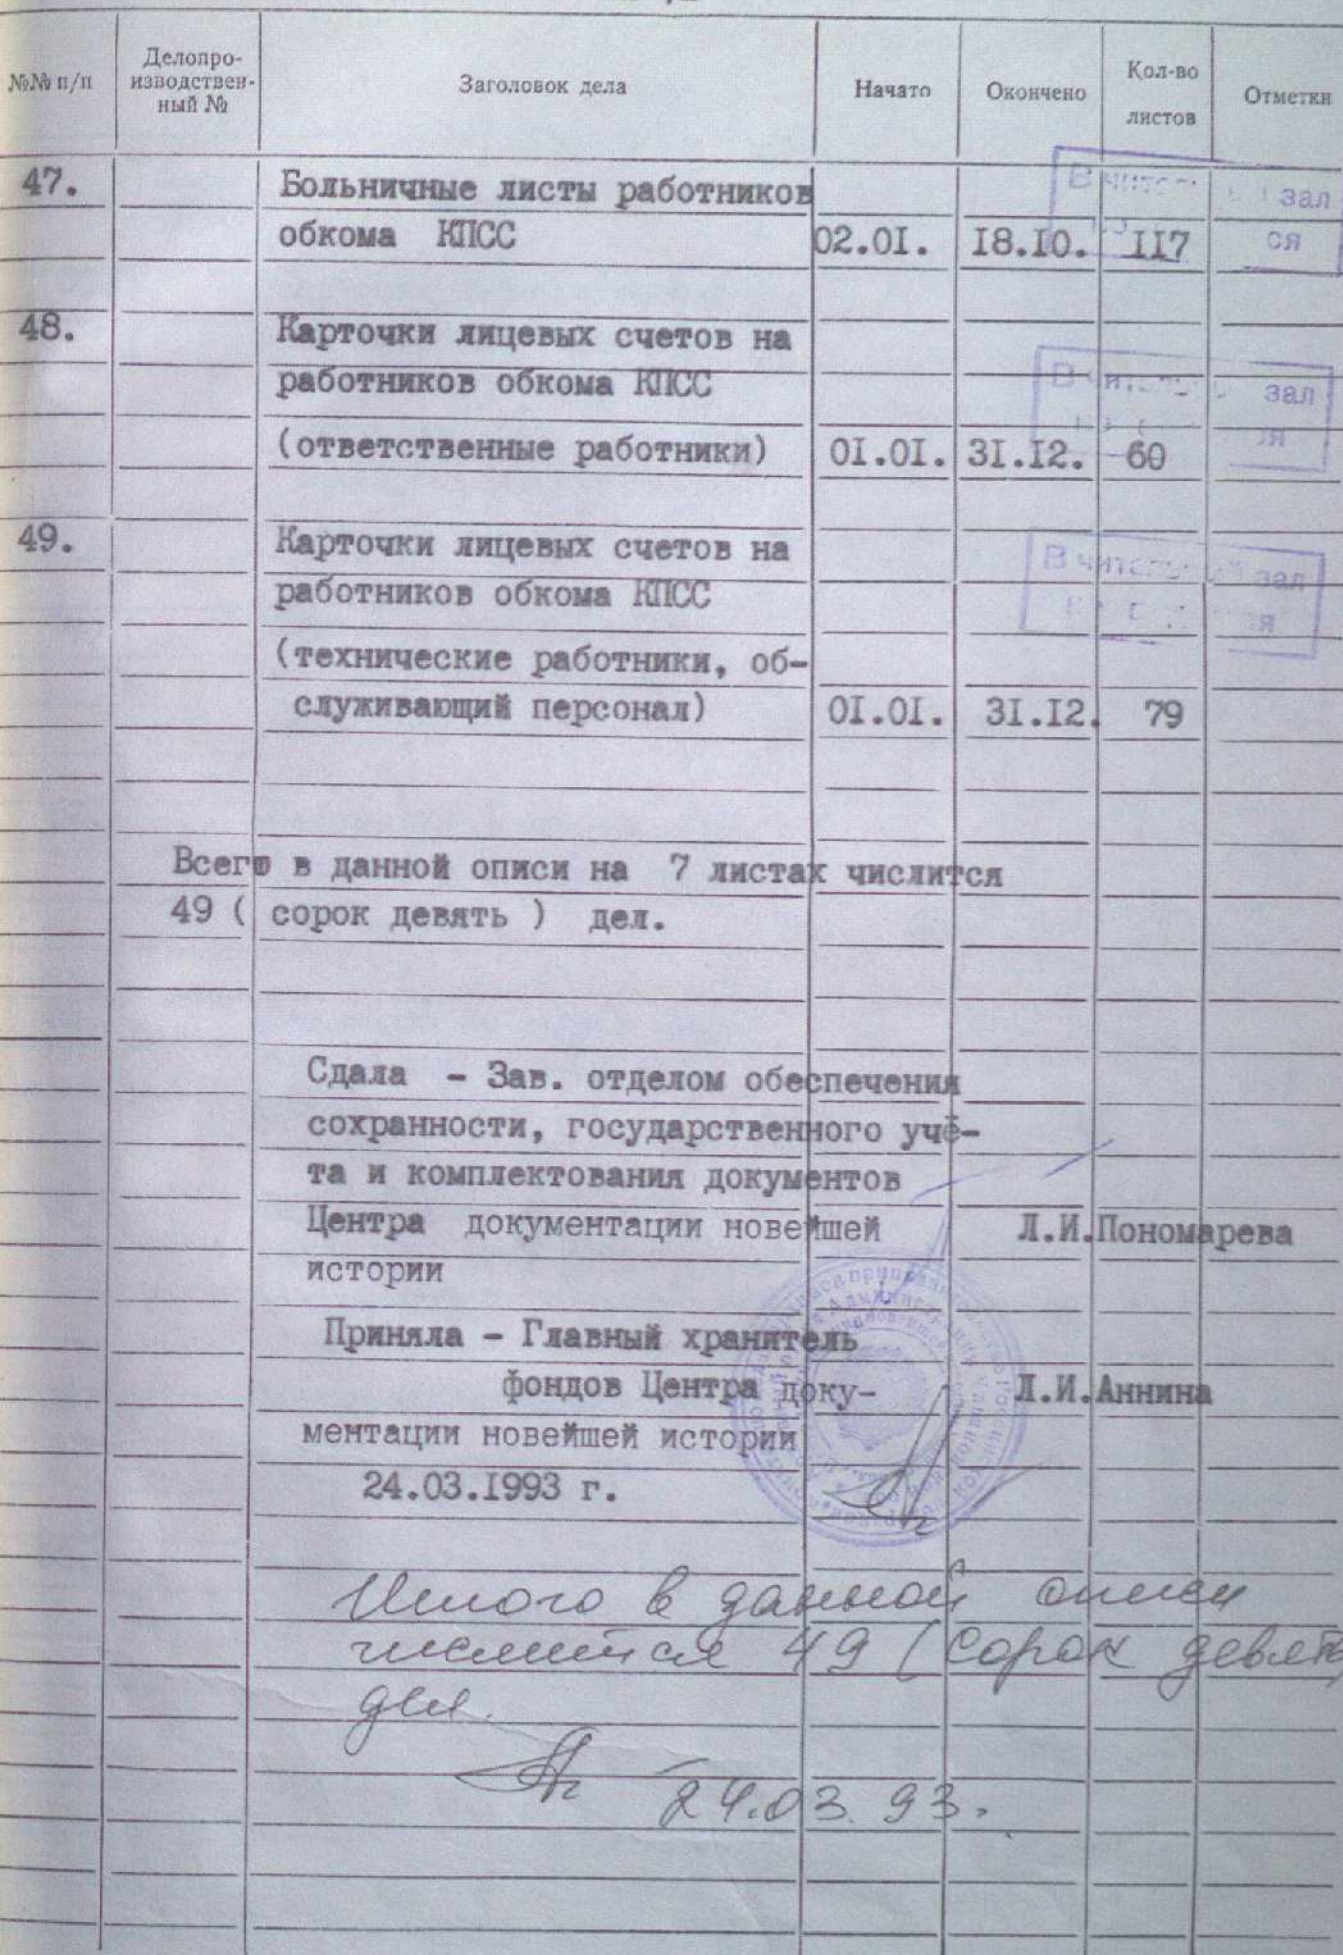 №№ п/п
Делопро-
изводствен-
ный №
Заголовок дела
Начато
Окончено
Кол-во
листов
Отметки
47. Больничные листы работников
обкома КПСС 02.01. 18.10. 117
В читальный зал
ся
48. Карточки лицевых счетов на
работников обкома КПСС
(ответственные работники) 01.01. 31.12. 60
зал
49. Карточки лицевых счетов на
работников обкома КПСС
(технические работники, об-
служивающий персонал) 01.01. 31.12. 79
В читальный зал
Всего в данной описи на 7 листах числится
49 ( сорок девять ) дел.
Сдала - Зав. отделом обеспечения
сохранности, государственного учё-
та и комплектования документов
Центра документации новейшей Л.И.Пономарева
истории
Приняла - Главный хранитель
фондов Центра доку- Л.И.Аннина
ментации новейшей истории
24.03.1993 г.
Итого в данной описи
числится 49 (сорок девять)
дел.
24.03.93.